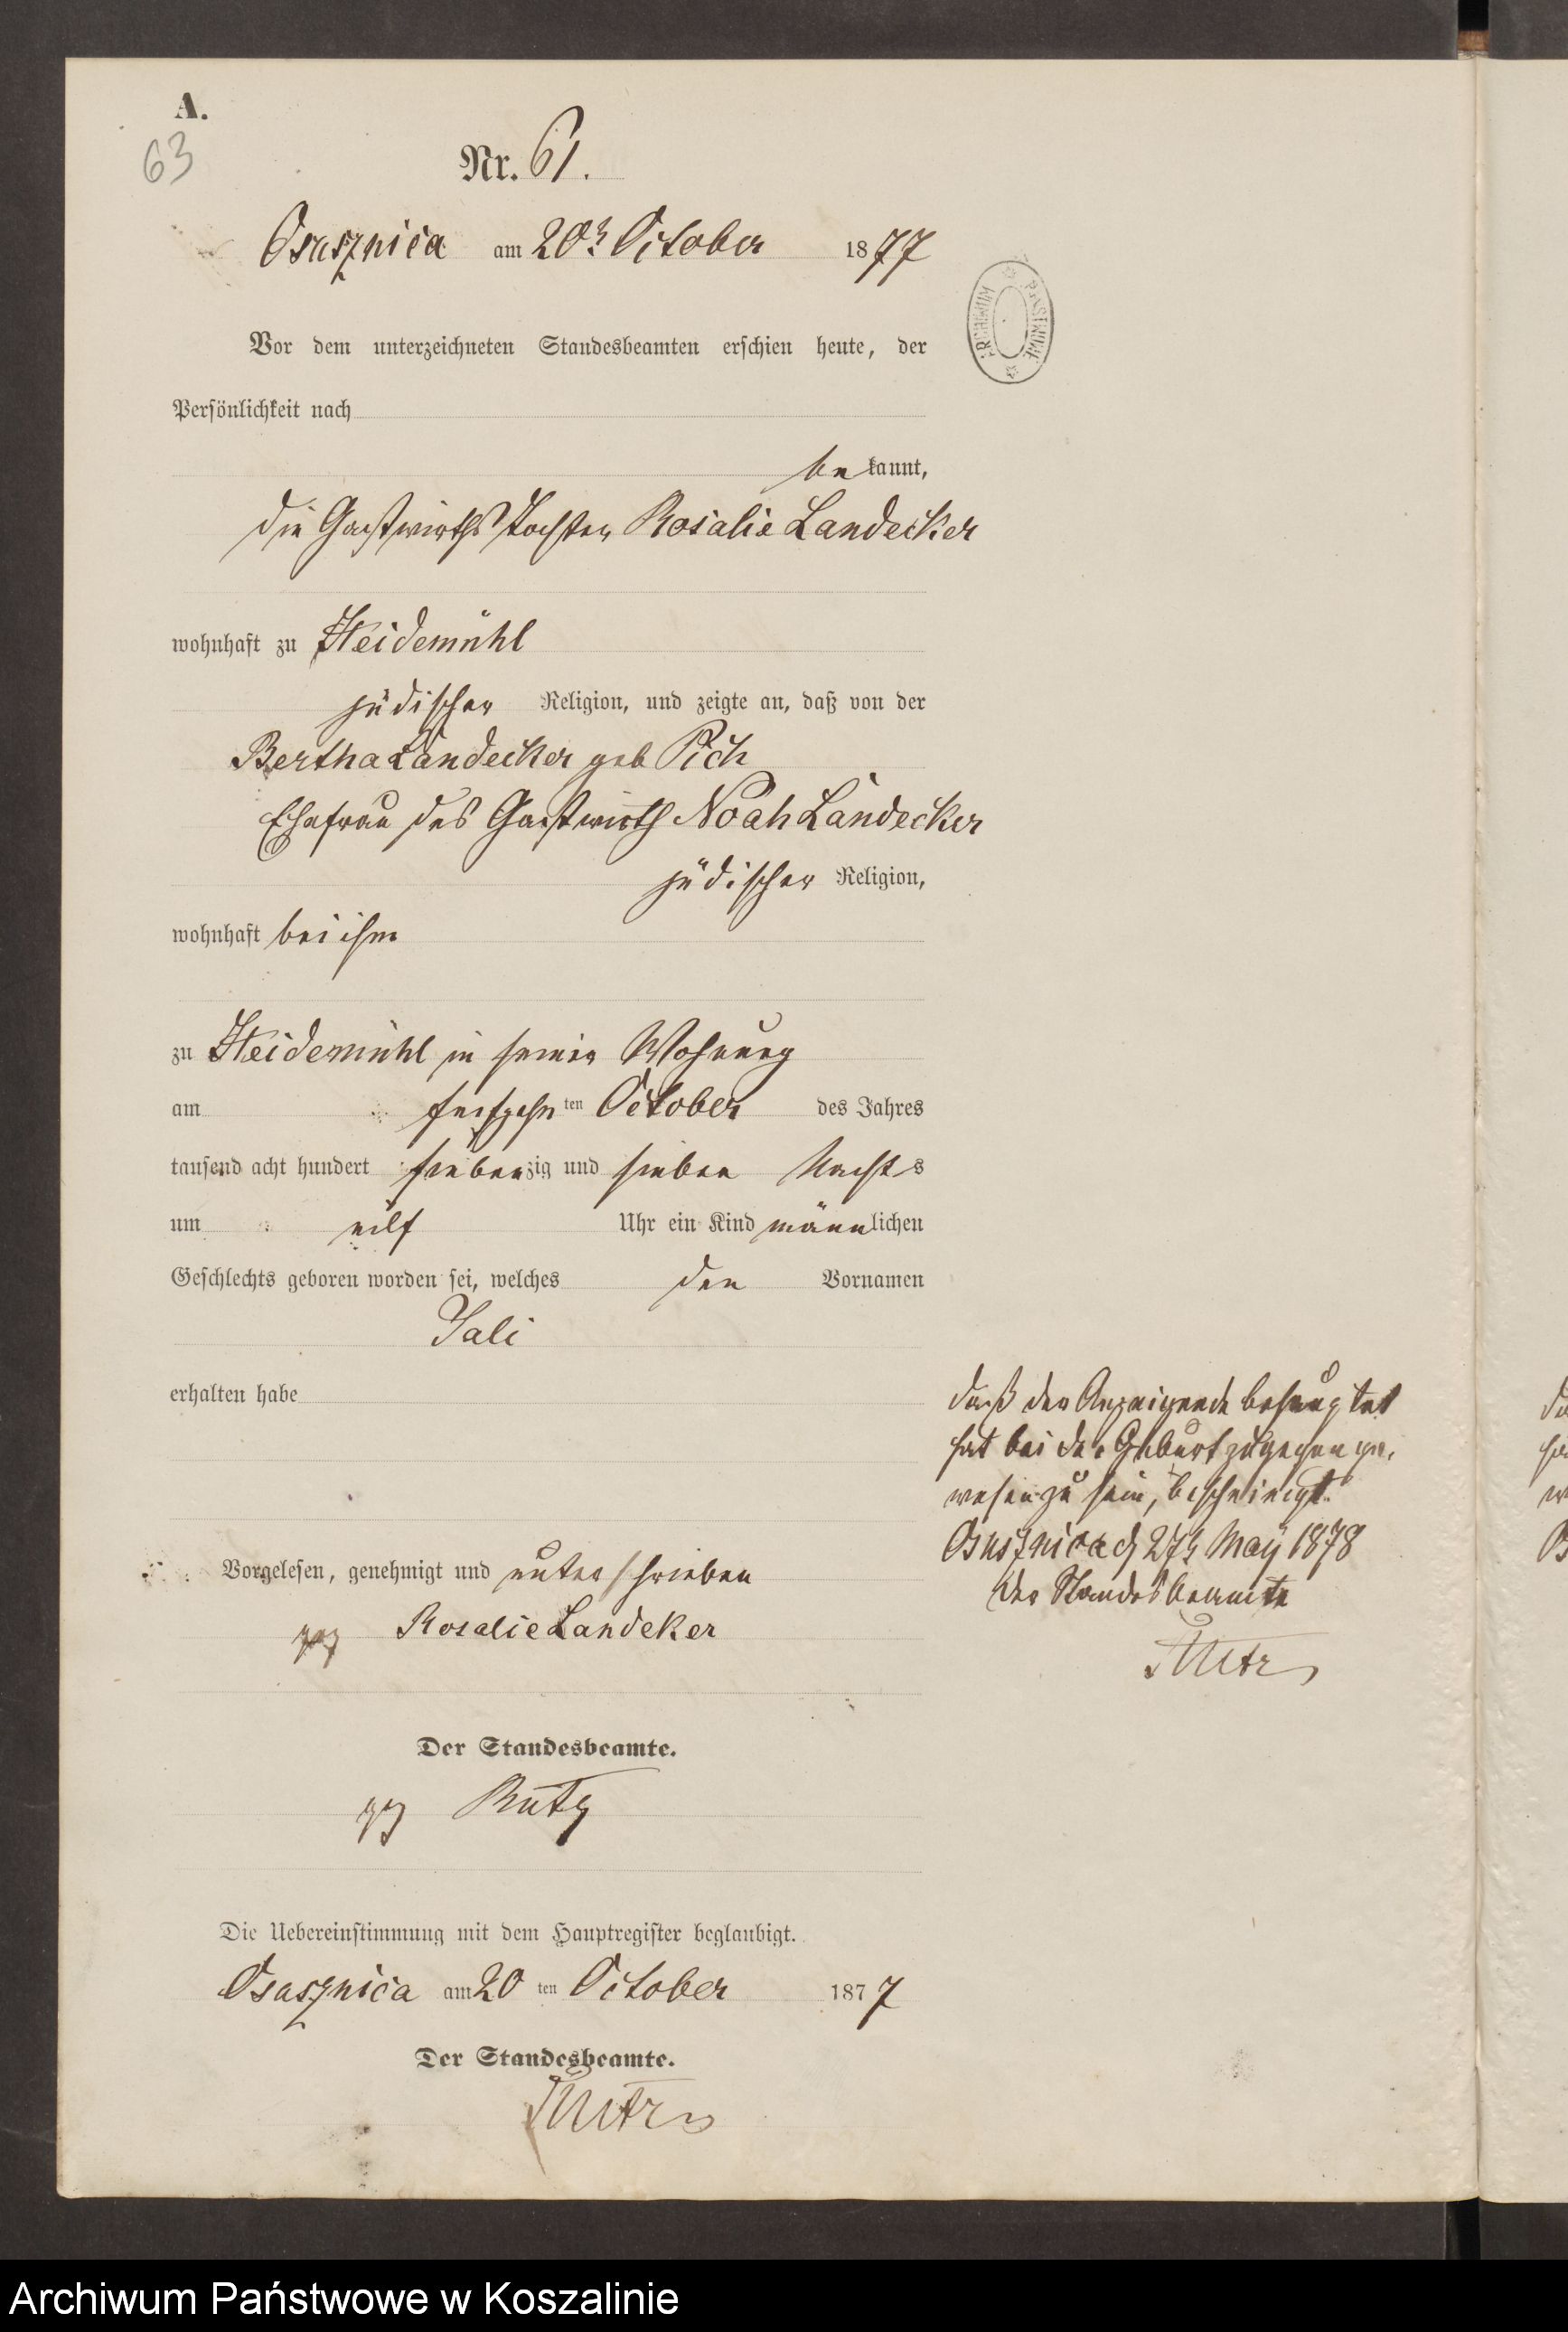 A.
63
Nr. 61.
Osusznica am 20t October 1877
ARCHIWUM PAŃSTWOWE
Vor dem unterzeichneten Standesbeamten erschien heute, der
Persönlichkeit nach
bekannt,
die Gastwirths Tochter Rosalie Landecker
wohnhaft zu Heidemühl
jüdischer Religion, und zeigte an, daß von der
Bertha Landecker geb Pich
Ehefrau des Gastwirth Noah Landecker
jüdischer Religion,
wohnhaft bei ihm
zu Heidemühl in seiner Wohnung
am ten October des Jahres
tausend acht hundert siebenzig und sieben Nachts
um eilf Uhr ein Kind männlichen
Geschlechts geboren worden sei, welches den Vornamen
Sali
erhalten habe
daß der Anzeigende behauptet
hat bei der Geburt zugegen ge-
wesen zu sein, bescheinigt.
Osusznica d 27t May 1878
Der Standesbeamte
Vorgelesen, genehmigt und unterschrieben
gez Rosalie Landeker
Der Standesbeamte.
gez
Die Uebereinstimmung mit dem Hauptregister beglaubigt.
Osusznica am 20 ten October 1877
Der Standesbeamte.
Archiwum Państwowe w Koszalinie